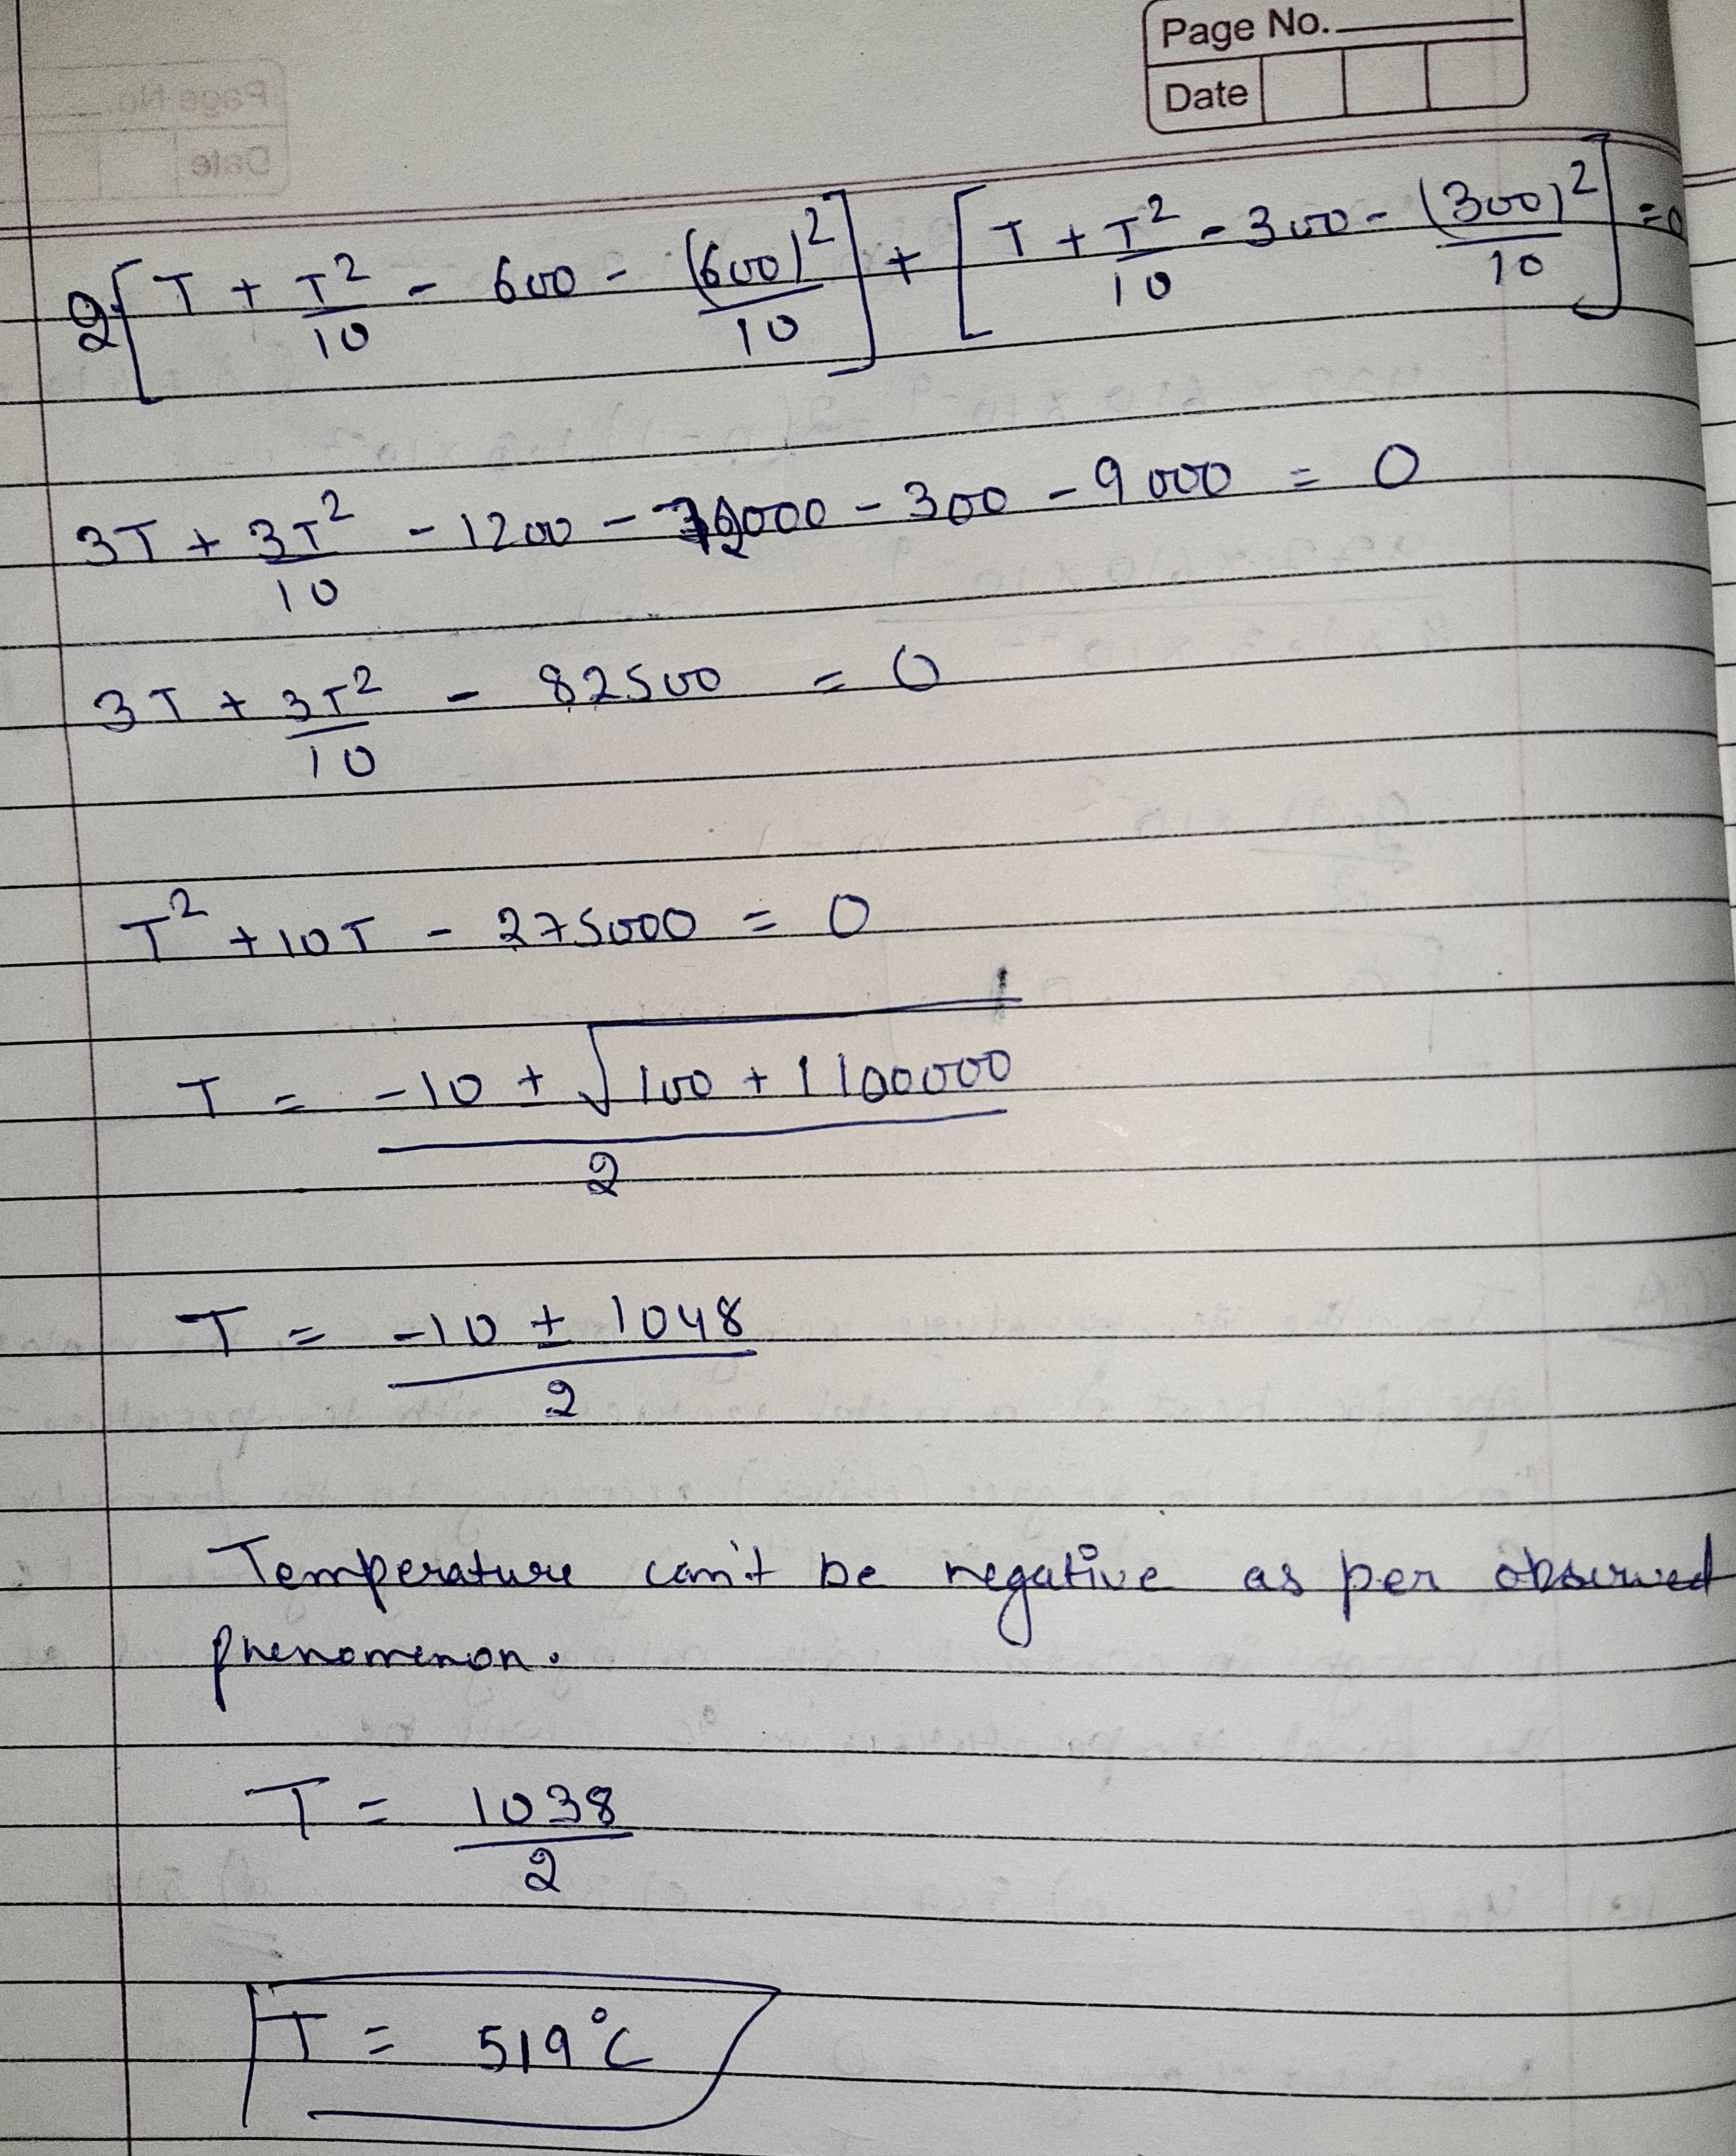 Page No.
Date
2[T + T²/10 - 600 - (600)²/10] + [T + T²/10 - 300 - (300)²/10] = 0
3T + 3T²/10 - 1200 - 72000 - 300 - 9000 = 0
3T + 3T²/10 - 82500 = 0
T² + 10T - 275000 = 0
T = -10 ± √(100 + 1100000) / 2
T = -10 ± 1048 / 2
Temperature can't be negative as per observed
phenomenon.
T = 1038/2
T = 519°C